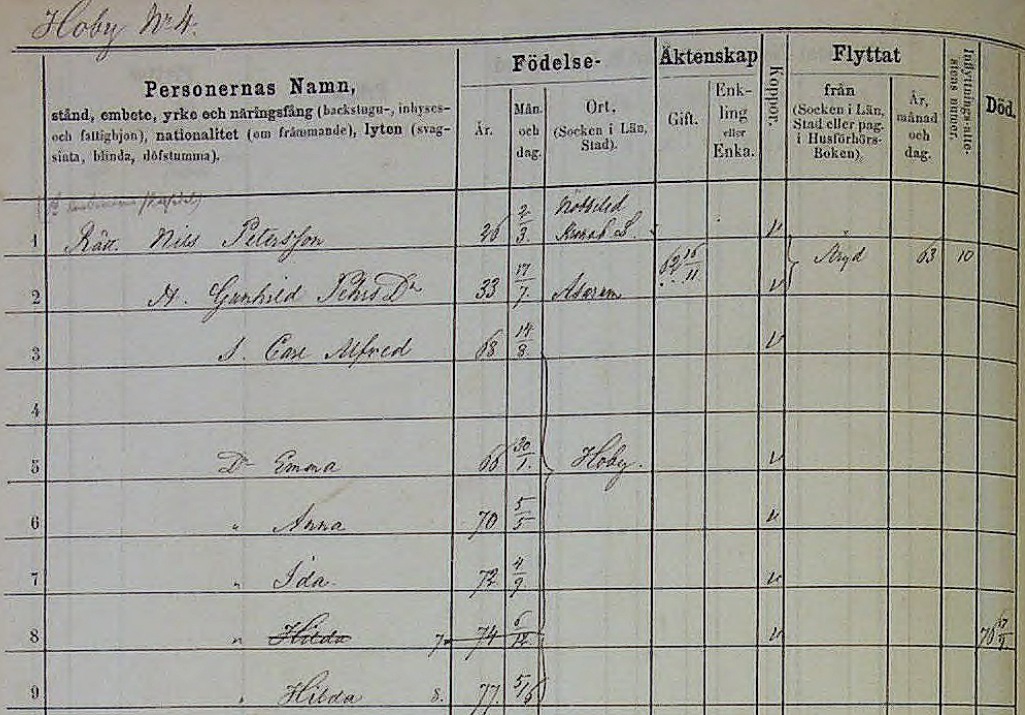 Hoby Nr 4.
Personernas Namn,
stånd, embete, yrke och näringsfång (backstugu-, inhyses-
och fattighjon), nationalitet (om främmande), lyten (svag-
sinta, blinda, döfstumma).
Födelse-
År.
Mån.
och
dag.
Ort.
(Socken i Län,
Stad).
Äktenskap
Gift.
Enk-
ling
eller
Enka.
Koppor.
Flyttat
från
(Socken i Län,
Stad eller pag.
i Husförhörs-
Boken).
År,
månad
och
dag.
Inflyttnings-atte-
stens numer.
Död.
1 Nils Petersson 26 2/3. v
2 H. Gunhild Pehrs Dr 33 17/7. Asarum 62 16/11 v Åryd 63 10
3 S. Carl Alfred 68 14/8. v
4
5 Dr Emma 66 30/1. Hoby. v
6 " Anna 70 5/5 v
7 " Ida 72 4/9 v
8 " Hilda 7 74 6/12 v
9 " Hilda 8. 77. 5/6